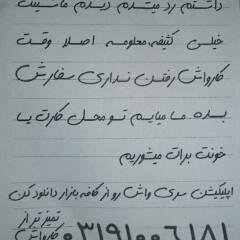 داشتم رد میشدم دیدم ماشینت
خیلی کثیفه، معلومه اصلا وقت
کارواش رفتن نداری سفارش
بده ما میایم تو محل کارت یا
خونت برات میشوریم
اپلیکیشن سری واش رو از کافه بازار دانلود کن
تمیز تر از
کارواش
۰۳۱۹۱۰۰۶۱۸۱